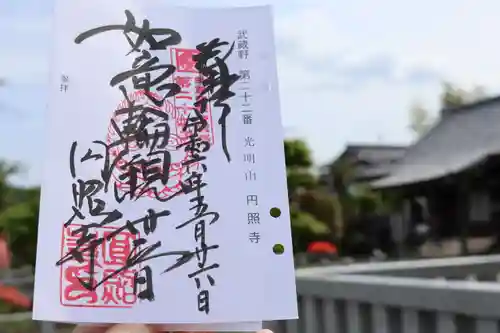 武蔵野 第二十二番 光明山 円照寺
奉拝 令和六年五月廿六日
如意輪観世音
円照寺